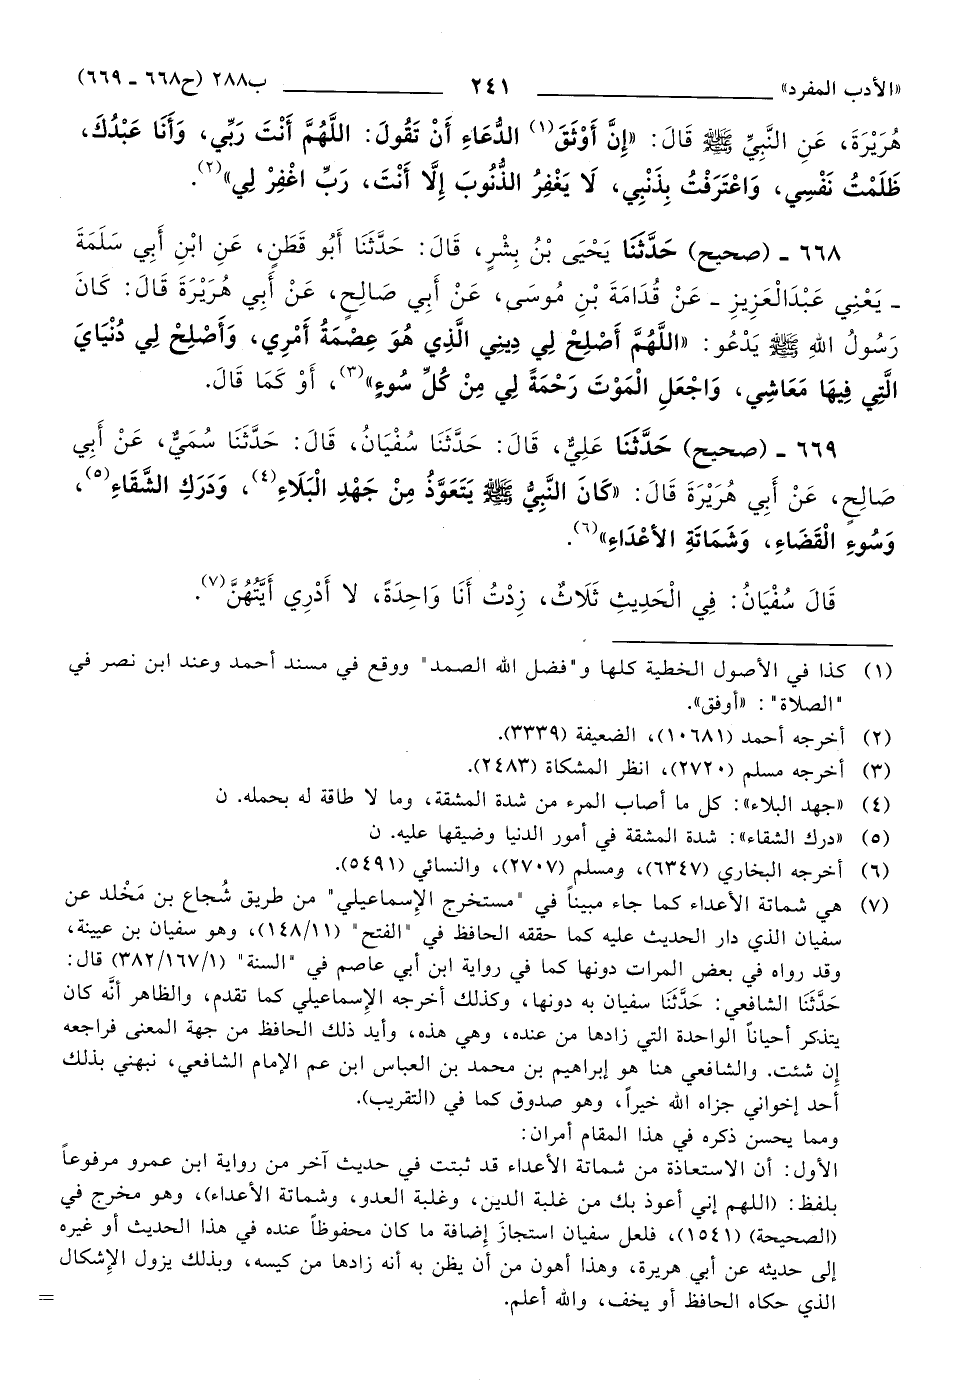 «الأدب المفرد» ٢٤١ ب٢٨٨ (ح٦٦٨ ـ ٦٦٩)
هُرَيْرَةَ، عَنِ النَّبِيِّ ﷺ قَالَ: «إِنَّ أَوْثَقَ(١) الدُّعَاءِ أَنْ تَقُولَ: اللَّهُمَّ أَنْتَ رَبِّي، وَأَنَا عَبْدُكَ،
ظَلَمْتُ نَفْسِي، وَاعْتَرَفْتُ بِذَنْبِي، لَا يَغْفِرُ الذُّنُوبَ إِلَّا أَنْتَ، رَبِّ اغْفِرْ لِي»(٢).
٦٦٨ ـ (صحيح) حَدَّثَنَا يَحْيَى بْنُ بِشْرٍ، قَالَ: حَدَّثَنَا أَبُو قَطَنٍ، عَنِ ابْنِ أَبِي سَلَمَةَ
ـ يَعْنِي عَبْدَالْعَزِيزِ ـ عَنْ قُدَامَةَ بْنِ مُوسَى، عَنْ أَبِي صَالِحٍ، عَنْ أَبِي هُرَيْرَةَ قَالَ: كَانَ
رَسُولُ اللهِ ﷺ يَدْعُو: «اللَّهُمَّ أَصْلِحْ لِي دِينِي الَّذِي هُوَ عِصْمَةُ أَمْرِي، وَأَصْلِحْ لِي دُنْيَايَ
الَّتِي فِيهَا مَعَاشِي، وَاجْعَلِ الْمَوْتَ رَحْمَةً لِي مِنْ كُلِّ سُوءٍ»(٣)، أَوْ كَمَا قَالَ.
٦٦٩ ـ (صحيح) حَدَّثَنَا عَلِيٌّ، قَالَ: حَدَّثَنَا سُفْيَانُ، قَالَ: حَدَّثَنَا سُمَيٌّ، عَنْ أَبِي
صَالِحٍ، عَنْ أَبِي هُرَيْرَةَ قَالَ: «كَانَ النَّبِيُّ ﷺ يَتَعَوَّذُ مِنْ جَهْدِ الْبَلَاءِ(٤)، وَدَرَكِ الشَّقَاءِ(٥)،
وَسُوءِ الْقَضَاءِ، وَشَمَاتَةِ الأَعْدَاءِ»(٦).
قَالَ سُفْيَانُ: فِي الْحَدِيثِ ثَلَاثٌ، زِدْتُ أَنَا وَاحِدَةً، لَا أَدْرِي أَيَّتُهُنَّ(٧).
(١) كذا في الأصول الخطية كلها و"فضل الله الصمد" ووقع في مسند أحمد وعند ابن نصر في
"الصلاة": «أوفق».
(٢) أخرجه أحمد (١٠٦٨١)، الضعيفة (٣٣٣٩).
(٣) أخرجه مسلم (٢٧٢٠)، انظر المشكاة (٢٤٨٣).
(٤) «جهد البلاء»: كل ما أصاب المرء من شدة المشقة، وما لا طاقة له بحمله. ن
(٥) «درك الشقاء»: شدة المشقة في أمور الدنيا وضيقها عليه. ن
(٦) أخرجه البخاري (٦٣٤٧)، ومسلم (٢٧٠٧)، والنسائي (٥٤٩١).
(٧) هي شماتة الأعداء كما جاء مبيناً في "مستخرج الإسماعيلي" من طريق شُجاع بن مَخْلد عن
سفيان الذي دار الحديث عليه كما حققه الحافظ في "الفتح" (١٤٨/١١)، وهو سفيان بن عيينة،
وقد رواه في بعض المرات دونها كما في رواية ابن أبي عاصم في "السنة" (٣٨٢/١٦٧/١) قال:
حَدَّثَنَا الشافعي: حَدَّثَنَا سفيان به دونها، وكذلك أخرجه الإسماعيلي كما تقدم، والظاهر أنَّه كان
يتذكر أحياناً الواحدة التي زادها من عنده، وهي هذه، وأيد ذلك الحافظ من جهة المعنى فراجعه
إن شئت. والشافعي هنا هو إبراهيم بن محمد بن العباس ابن عم الإمام الشافعي، نبهني بذلك
أحد إخواني جزاه الله خيراً، وهو صدوق كما في (التقريب).
ومما يحسن ذكره في هذا المقام أمران:
الأول: أن الاستعاذة من شماتة الأعداء قد ثبتت في حديث آخر من رواية ابن عمرو مرفوعاً
بلفظ: (اللهم إني أعوذ بك من غلبة الدين، وغلبة العدو، وشماتة الأعداء)، وهو مخرج في
(الصحيحة) (١٥٤١)، فلعل سفيان استجازَ إضافة ما كان محفوظاً عنده في هذا الحديث أو غيره
إلى حديثه عن أبي هريرة، وهذا أهون من أن يظن به أنه زادها من كيسه، وبذلك يزول الإشكال
الذي حكاه الحافظ أو يخف، والله أعلم. =